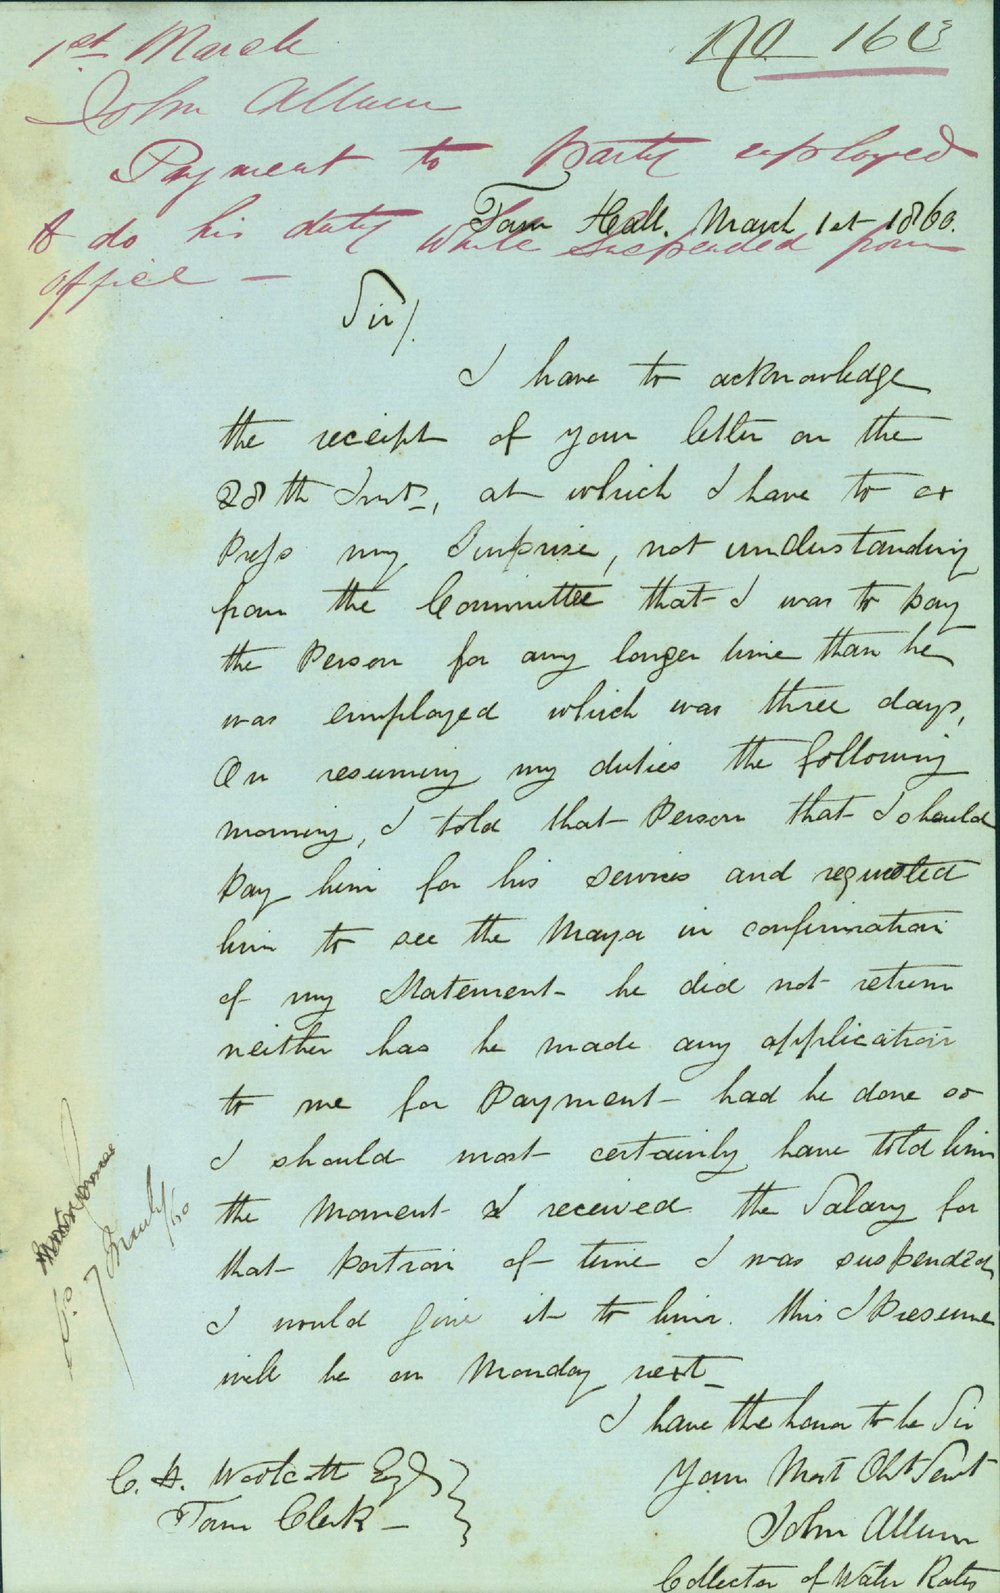 1st March
No 160
John Allum
Payment to Party employed
to do his duty while suspended from
office —
Town Hall. March 1st 1860.
Sir/.
I have to acknowledge
the receipt of your letter on the
28th Inst, at which I have to ex
press my Surprise, not understanding
from the Committee that I was to pay
the Person for any longer time than he
was employed which was three days,
On resuming my duties the following
morning, I told that Person that I should
pay him for his services and requested
him to see the Mayor in confirmation
of my Statement - he did not return
neither has he made any application
to me for Payment - had he done so
I should most certainly have told him
the Moment I received the Salary for
that portion of time I was suspended
I would give it to him. this I Presume
will be on Monday next -
I have the honor to be Sir
Your Most Obt Servt
John Allum
Collector of Water Rates
C. H. Woolcott Esq
Town Clerk -
7 March/60